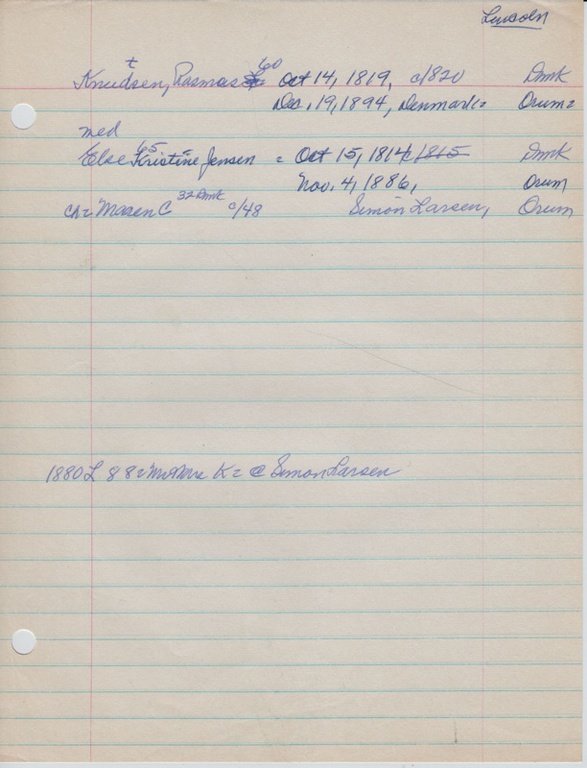 Lincoln
t 60
Knudsen, Rasmas Oct 14, 1819, c/820 Dmk
Dec. 19, 1894, Denmark= Orum=
med
65
Else Kristine Jensen = Oct 15, 1814 c/815 Dmk
Nov. 4, 1886, Orum
ch= Maren C 32 Dmk c/48 Simon Larsen, Orum
1880 L 8 8= Mr Mrs K= @ Simon Larsen